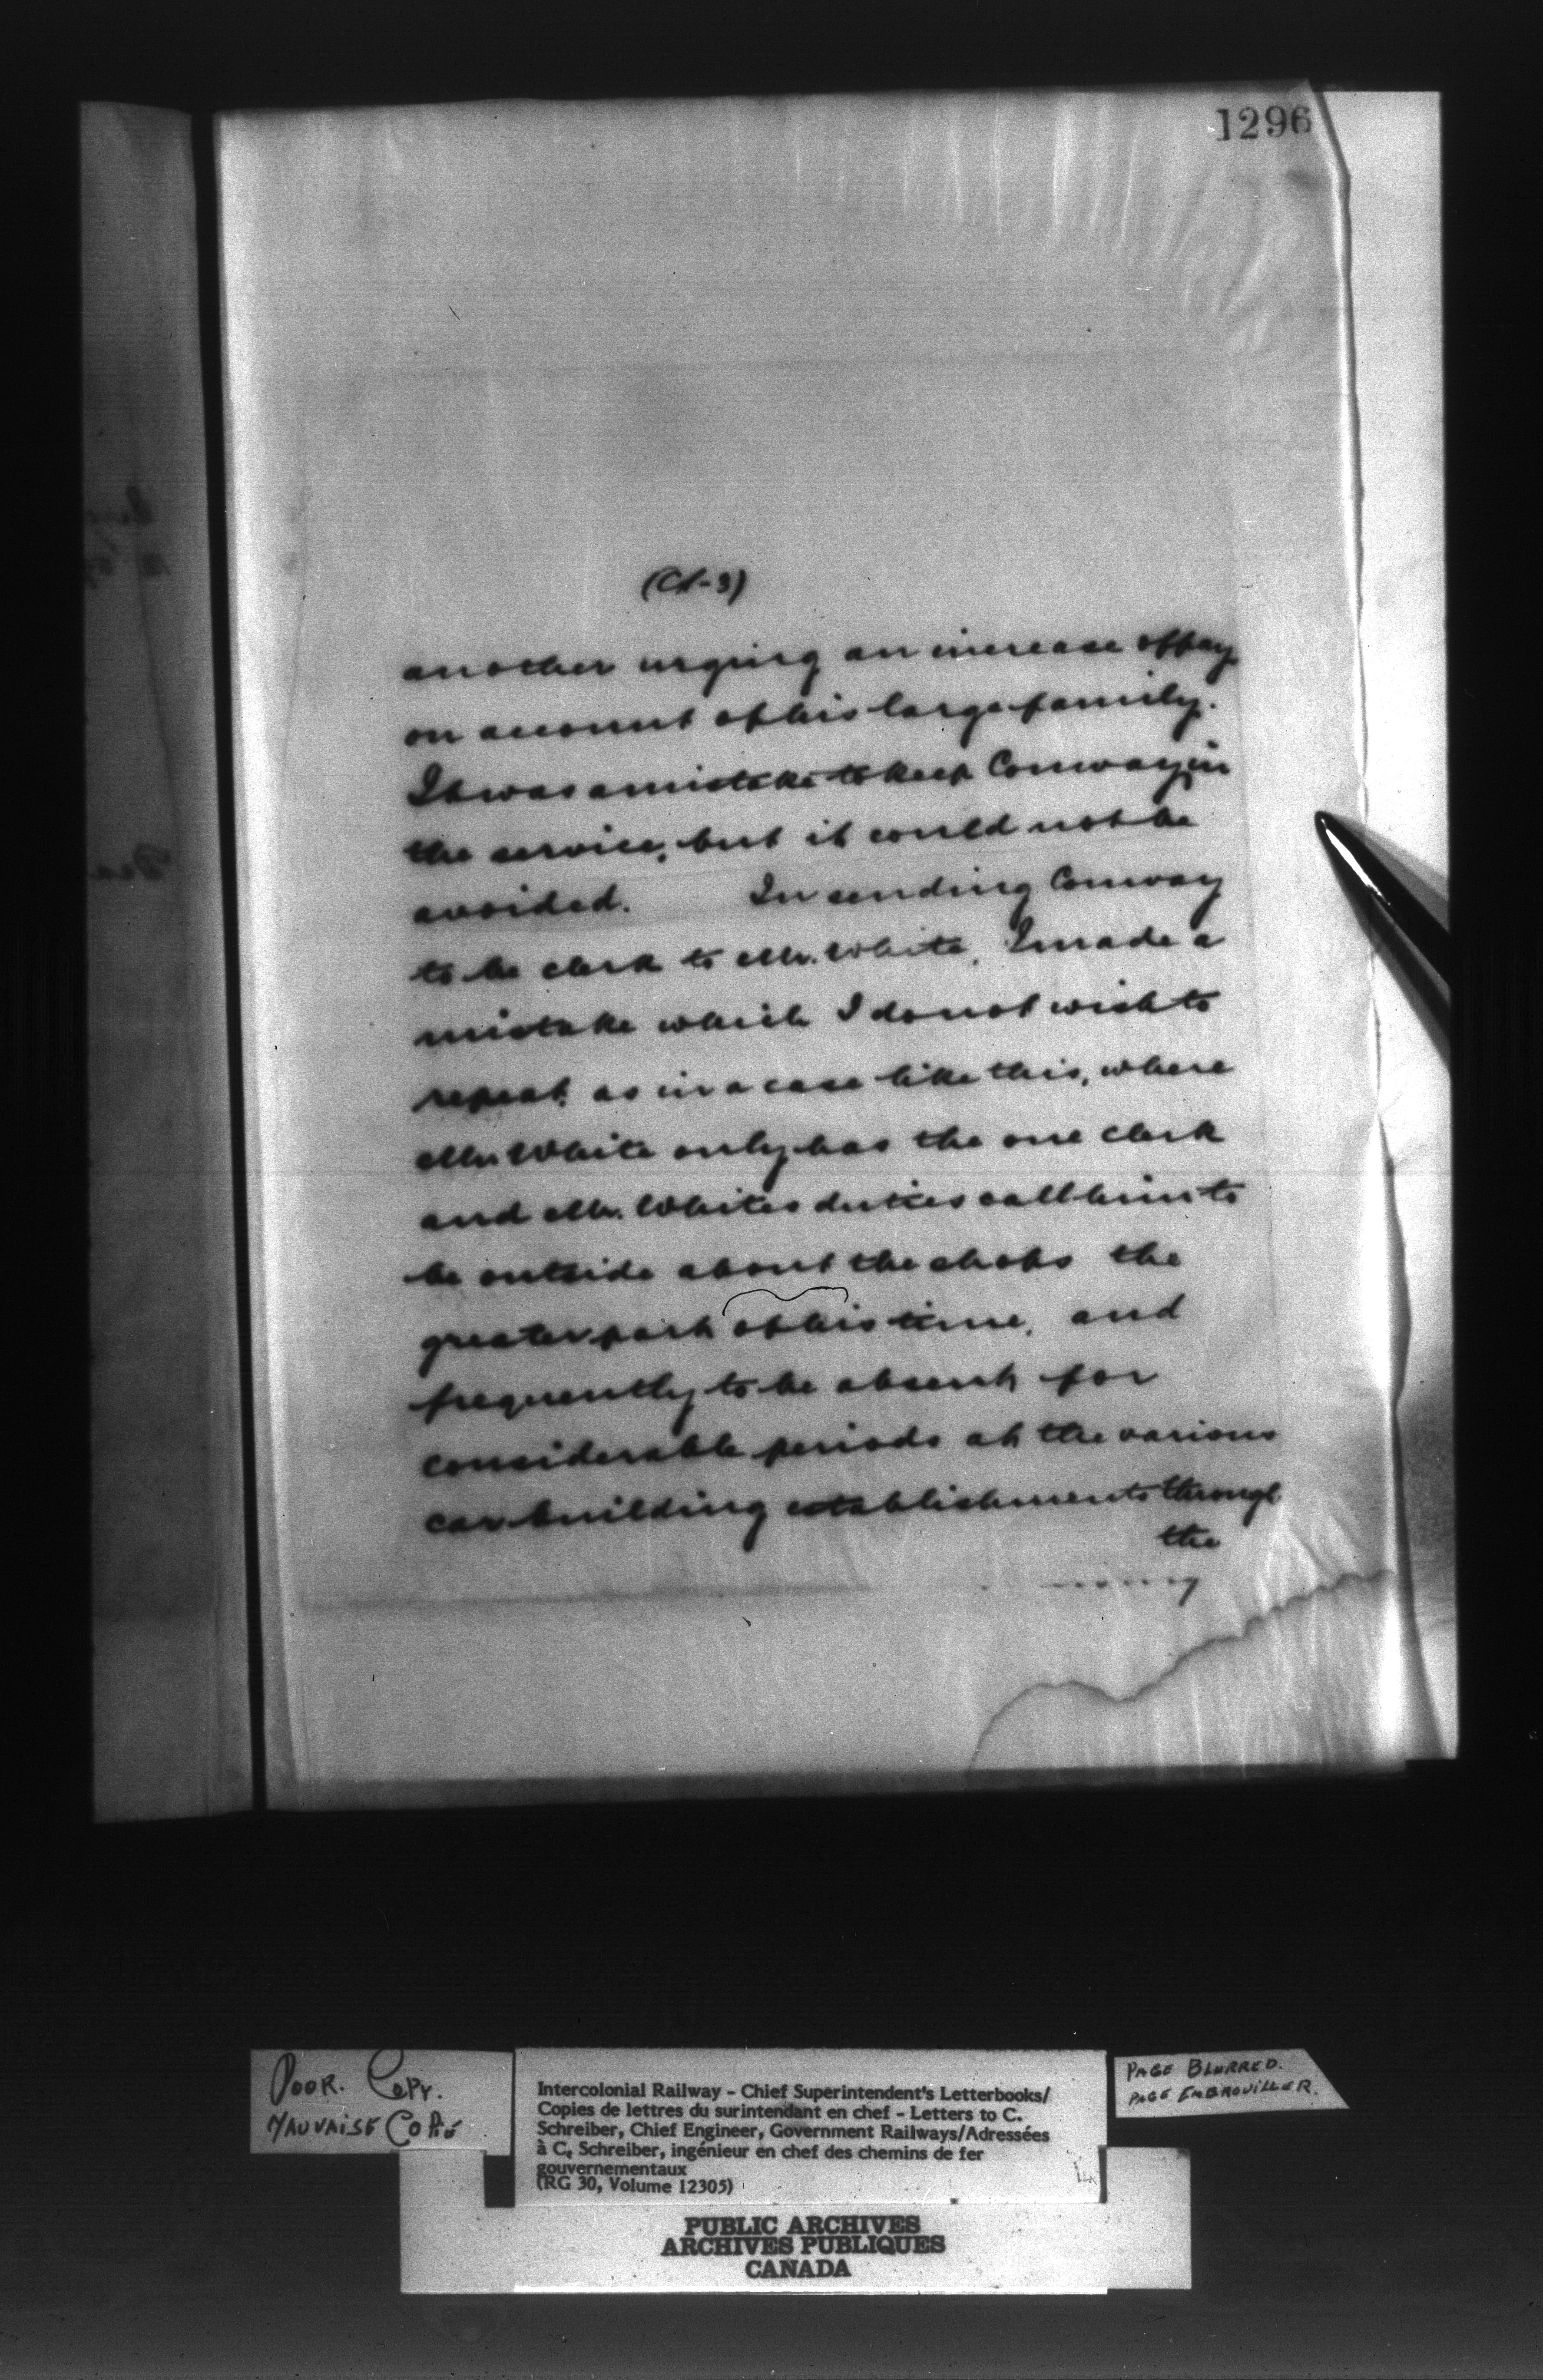 1296
another urging an increase of pay
on account of his large family.
It was a mistake to keep Conway in
the service, but it could not be
avoided. In sending Conway
to be clerk to Mr. White, I made a
mistake which I do not wish to
repeat, as in a case like this, where
Mr. White only has the one clerk
and Mr. Whites duties call him to
be outside about the shops the
greater part of his time, and
frequently to be absent for
considerable periods at the various
car building establishments through
the
POOR. COPY.
MAUVAISE COPIE
Intercolonial Railway - Chief Superintendent's Letterbooks/
Copies de lettres du surintendant en chef - Letters to C.
Schreiber, Chief Engineer, Government Railways/Adressées
à C. Schreiber, ingénieur en chef des chemins de fer
gouvernementaux
(RG 30, Volume 12305)
PAGE BLURRED.
PAGE EMBROUILLER.
PUBLIC ARCHIVES
ARCHIVES PUBLIQUES
CANADA